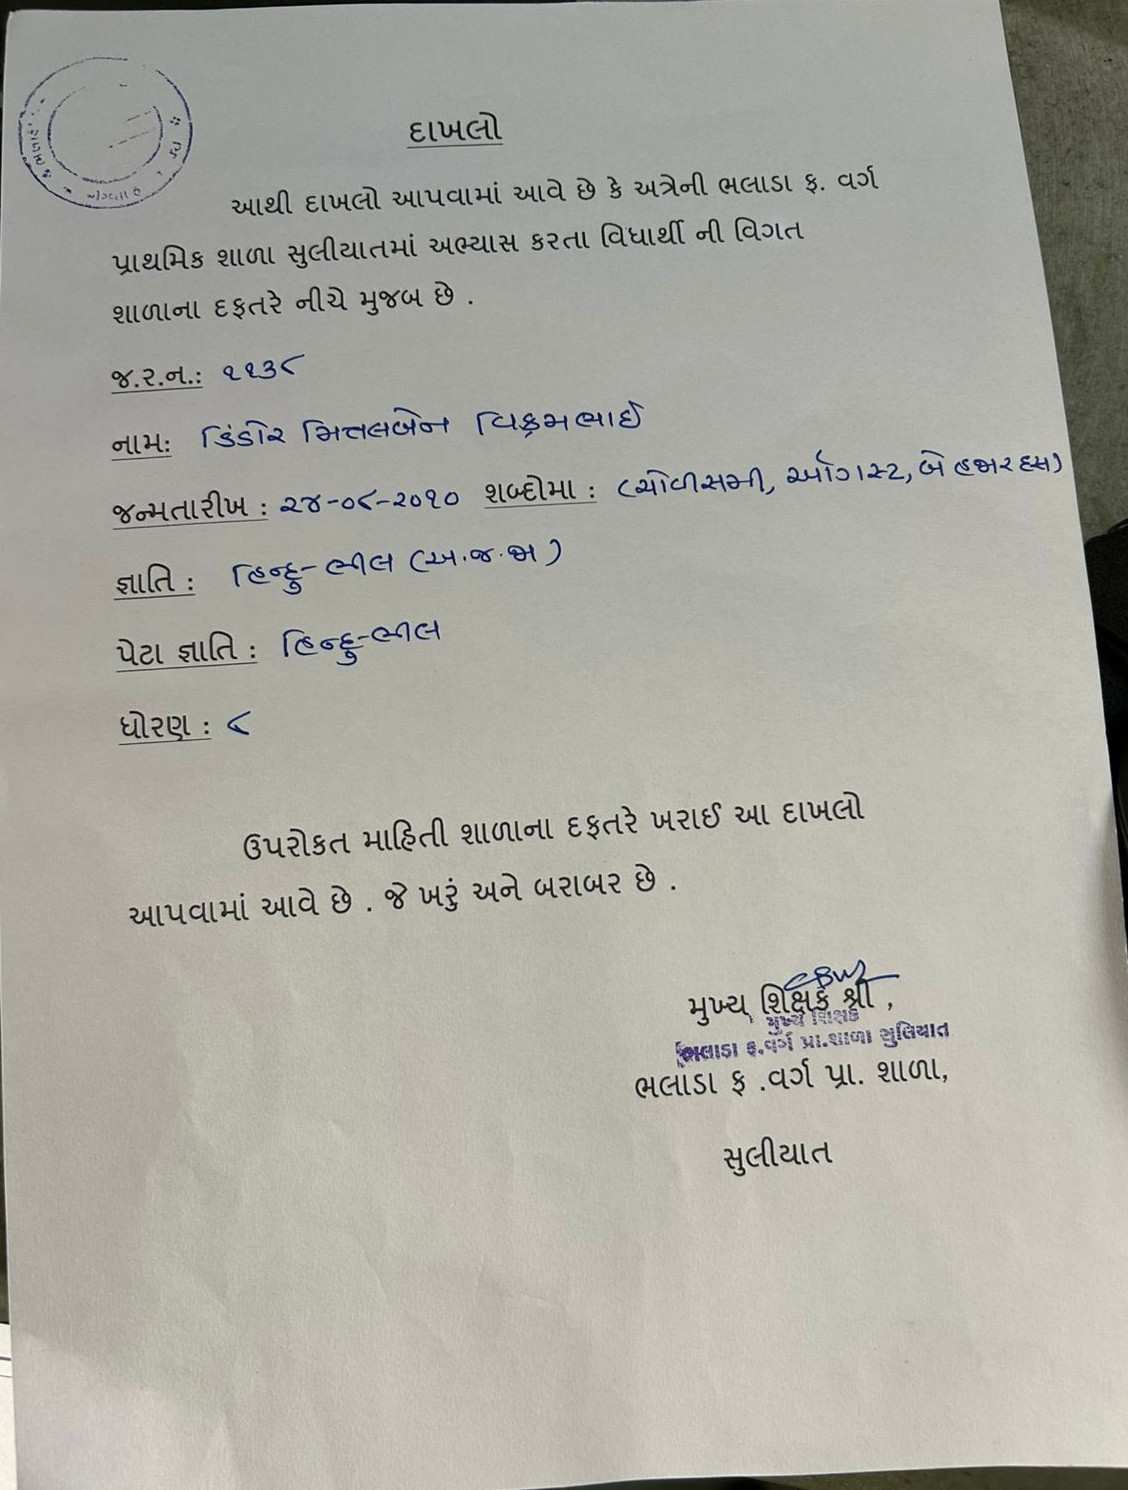 દાખલો
આથી દાખલો આપવામાં આવે છે કે અત્રેની ભલાડા ફ. વર્ગ
પ્રાથમિક શાળા સુલીયાતમાં અભ્યાસ કરતા વિધાર્થી ની વિગત
શાળાના દફતરે નીચે મુજબ છે .
જ.ર.ન.: ૧૧૩૮
નામ: ડિંડોર મિત્તલબેન વિક્રમભાઈ
જન્મતારીખ : ૨૪-૦૮-૨૦૧૦ શબ્દોમા : (ચોવીસમી, ઑગસ્ટ, બે હજાર દસ)
જ્ઞાતિ : હિન્દુ-ભીલ (અ.જ.જા)
પેટા જ્ઞાતિ : હિન્દુ-ભીલ
ધોરણ : ૮
ઉપરોકત માહિતી શાળાના દફતરે ખરાઈ આ દાખલો
આપવામાં આવે છે . જે ખરું અને બરાબર છે .
મુખ્ય શિક્ષક શ્રી ,
મુખ્ય શિક્ષક
ભલાડા ફ.વર્ગ પ્રા.શાળા સુલિયાત
ભલાડા ફ .વર્ગ પ્રા. શાળા,
સુલીયાત